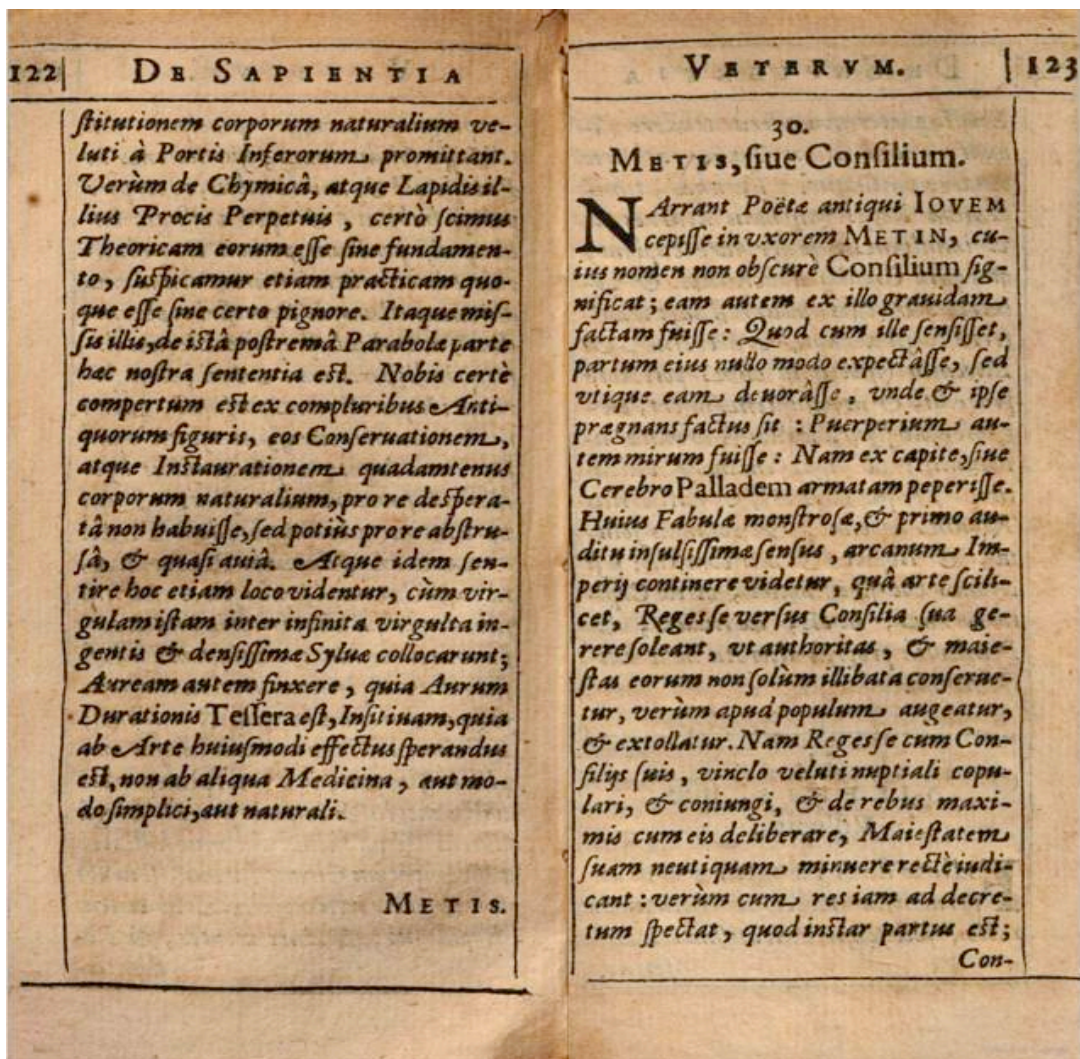 122 DE SAPIENTIA
ſtitutionem corporum naturalium ve-
luti à Portis Inferorum promittant.
Verùm de Chymicâ, atque Lapidis il-
lius Procis Perpetuis, certò ſcimus
Theoricam eorum eſſe ſine fundamen-
to, ſuſpicamur etiam practicam quo-
que eſſe ſine certo pignore. Itaque miſ-
ſis illis, de iſtâ poſtremâ Parabolæ parte
hæc noſtra ſententia eſt. Nobis certè
compertum eſt ex compluribus Anti-
quorum figuris, eos Conſeruationem,
atque Inſtaurationem quadamtenus
corporum naturalium, pro re deſpera-
tâ non habuiſſe, ſed potiùs pro re abſtru-
ſâ, & quaſi auiâ. Atque idem ſen-
tire hoc etiam loco videntur, cùm vir-
gulam iſtam inter infinita virgulta in-
gentis & denſiſſimæ Syluæ collocarunt;
Auream autem finxere, quia Aurum
Durationis Teſſera eſt, Inſitiuam, quia
ab Arte huiuſmodi effectus ſperandus
eſt, non ab aliqua Medicina, aut mo-
do ſimplici, aut naturali.
METIS.
VETERVM. 123
30.
METIS, ſiue Conſilium.
NArrant Poëtæ antiqui IOVEM
cepiſſe in vxorem METIN, cu-
ius nomen non obſcurè Conſilium ſig-
nificat; eam autem ex illo grauidam
factam fuiſſe: Quod cum ille ſenſiſſet,
partum eius nullo modo expectâſſe, ſed
vtique eam deuorâſſe, vnde & ipſe
prægnans factus ſit: Puerperium au-
tem mirum fuiſſe: Nam ex capite, ſiue
Cerebro Palladem armatam peperiſſe.
Huius Fabulæ monſtroſæ, & primo au-
ditu inſulſiſſimæ ſenſus, arcanum Im-
perij continere videtur, quâ arte ſcili-
cet, Reges ſe verſus Conſilia ſua ge-
rere ſoleant, vt authoritas, & maie-
ſtas eorum non ſolùm illibata conſerue-
tur, verùm apud populum augeatur,
& extollatur. Nam Reges ſe cum Con-
ſilijs ſuis, vinclo veluti nuptiali copu-
lari, & coniungi, & de rebus maxi-
mis cum eis deliberare, Maieſtatem
ſuam neutiquam minuere rectè iudi-
cant: verùm cum res iam ad decre-
tum ſpectat, quod inſtar partus eſt;
Con-